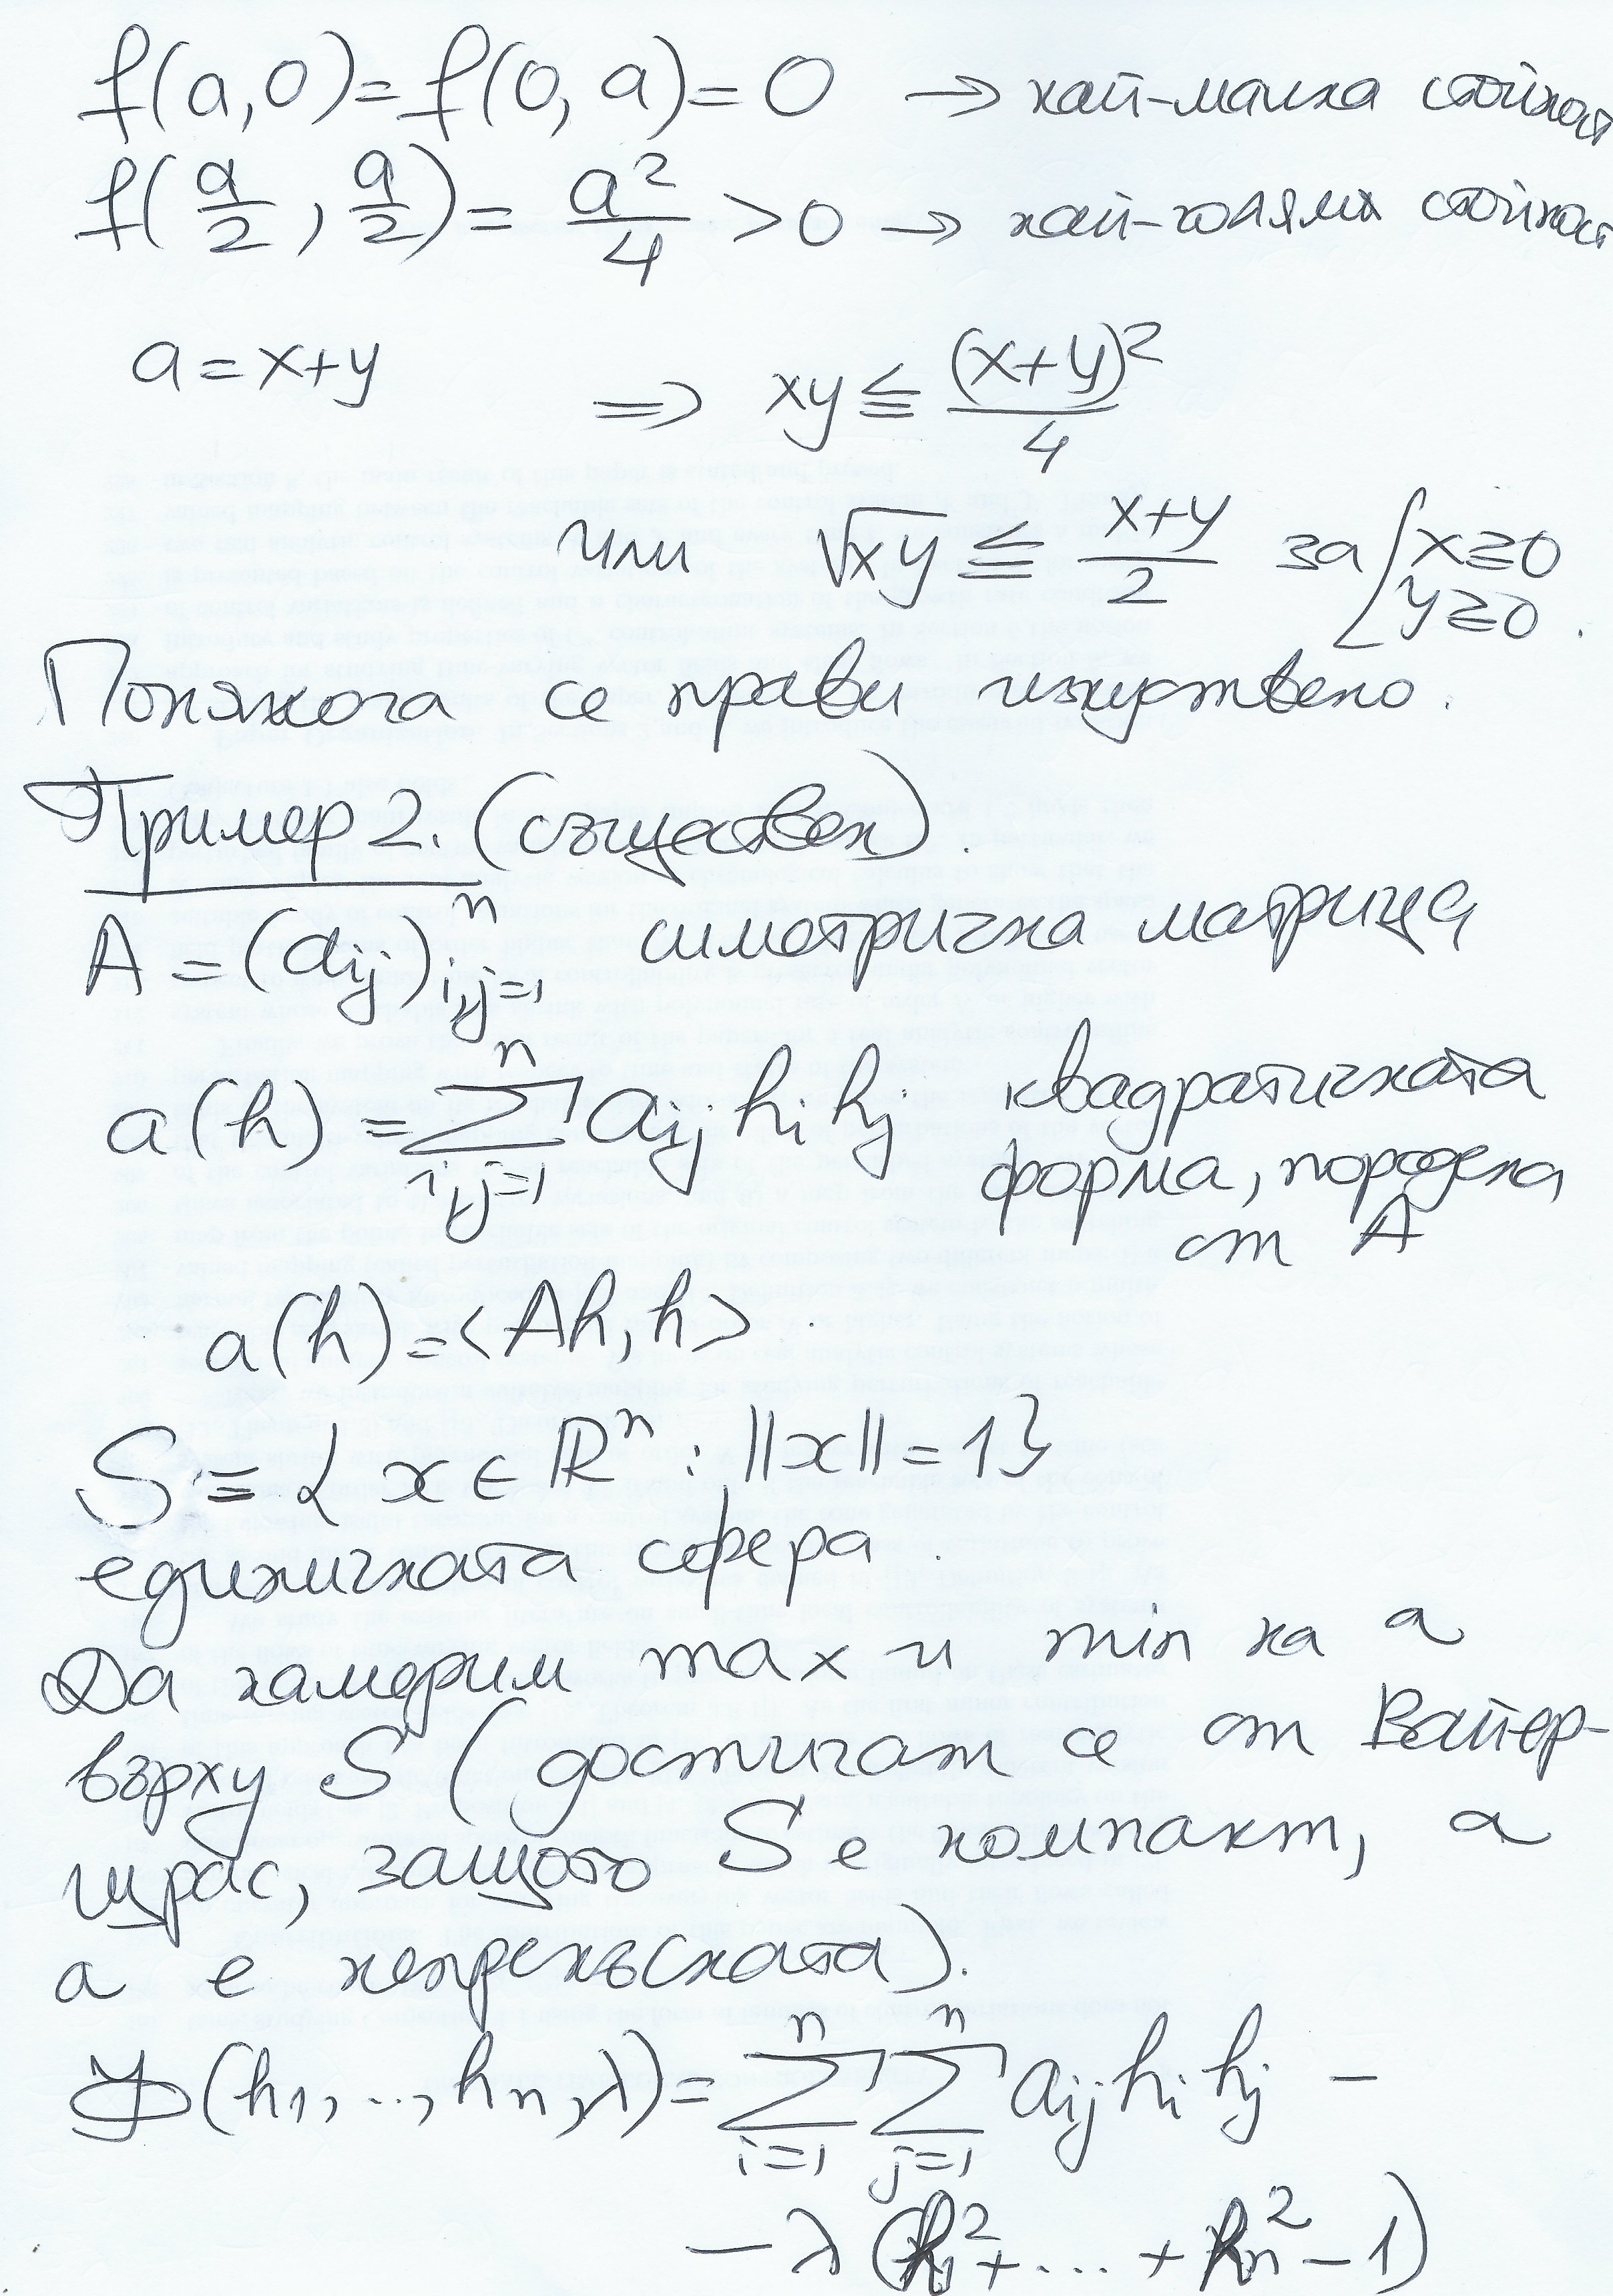 f(a,0)=f(0,a)=0 → най-малка стойност
f(a/2, a/2)= a²/4 >0 → най-голяма стойност
a=x+y ⇒ xy ≦ (x+y)²/4
или √xy ≦ (x+y)/2 за { x≥0 y≥0 .
Понякога се прави изкуствено.
Пример 2. (съществен).
A=(aij)ⁿi,j=1 симетрична матрица
a(h) = ∑ⁿi,j=1 aij hi hj квадратичната
форма, породена
от A
a(h)=<Ah,h> .
S:={x∈ℝⁿ : ||x||=1}
единичната сфера.
Да намерим max и min на a
върху S (достигат се от Вайер-
щрас, защото S е компакт, а
a е непрекъсната).
Φ(h₁,..,hn,λ)= ∑ⁿi=1 ∑ⁿj=1 aij hi hj −
−λ(h₁²+...+hn²−1)